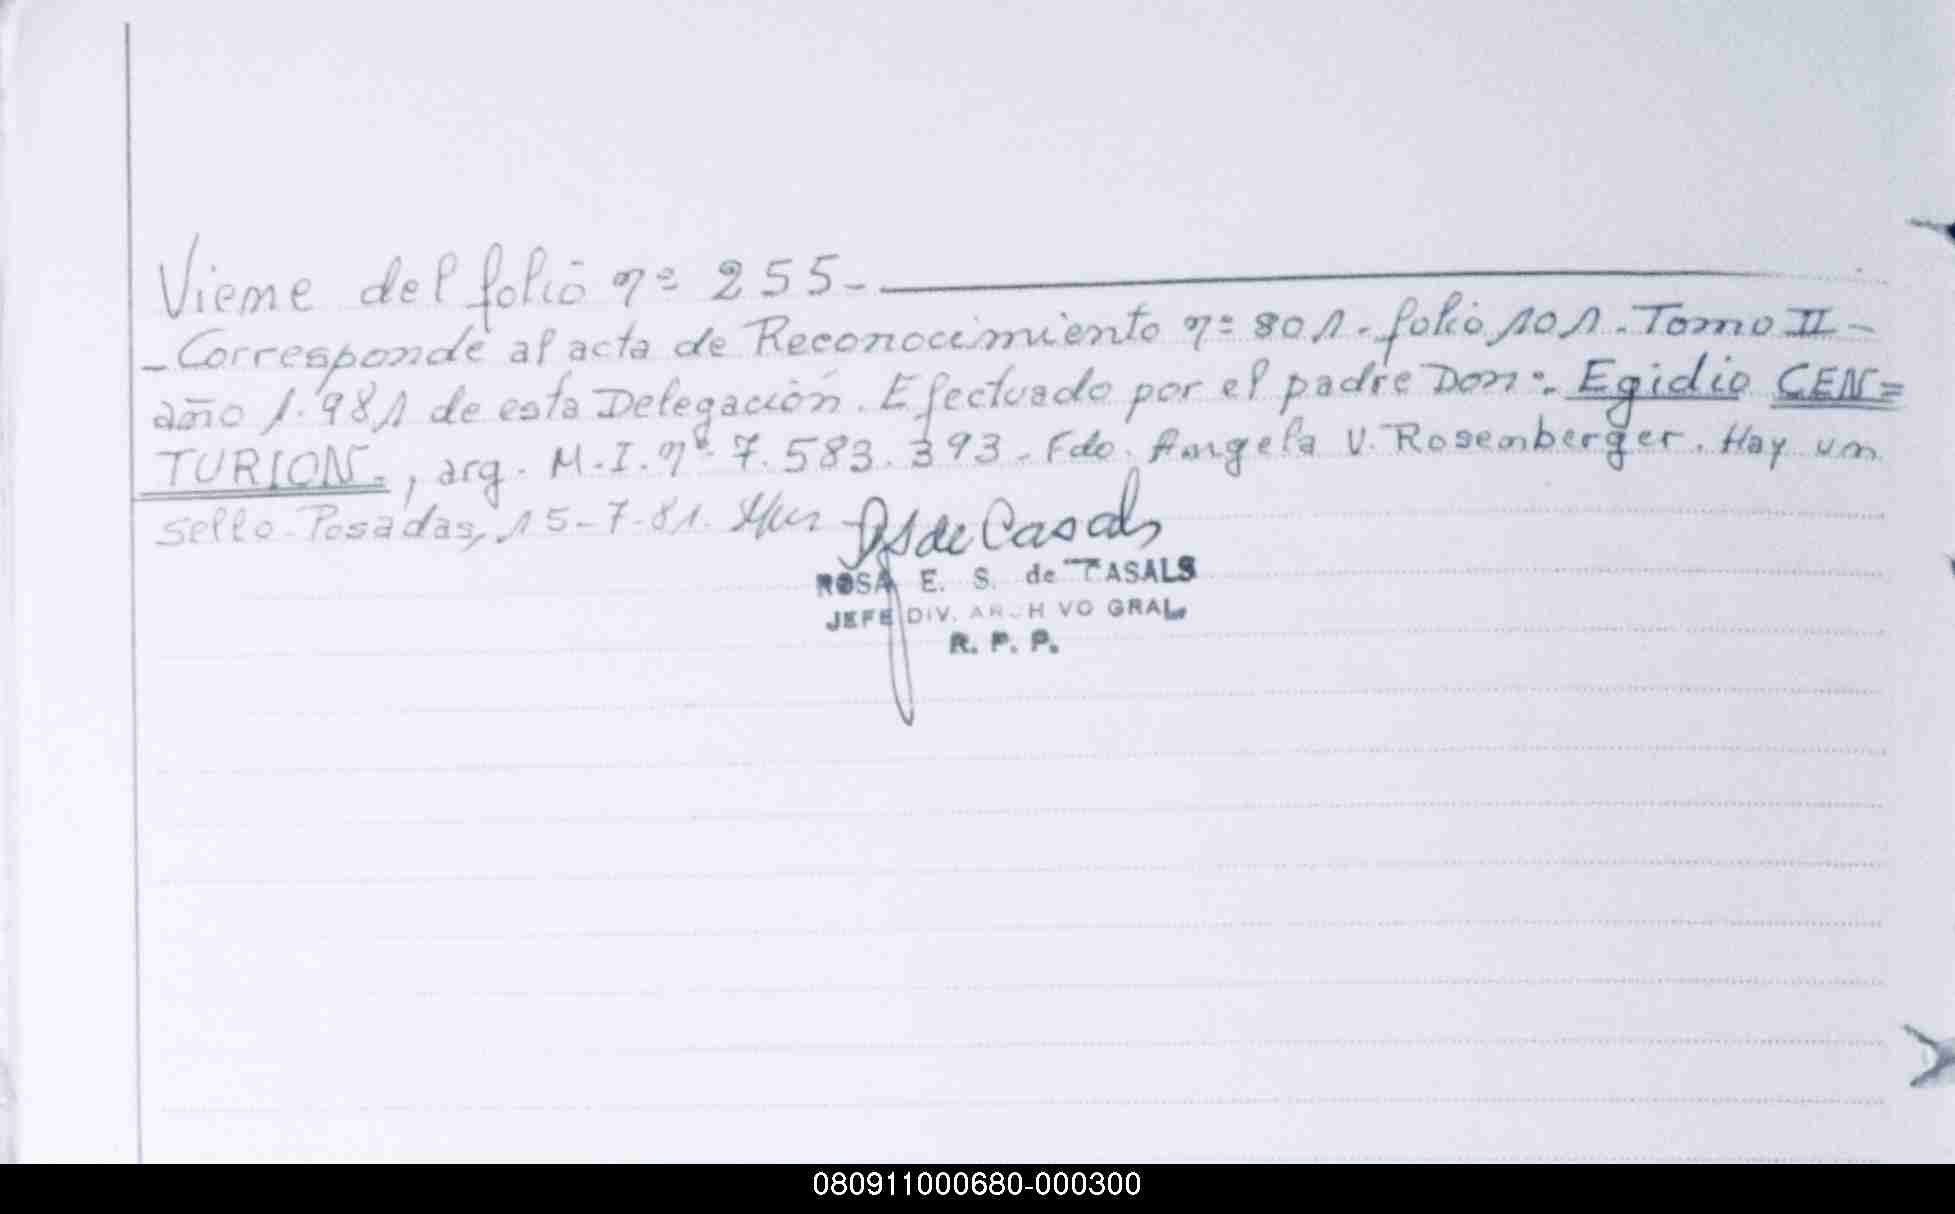 Viene del folio nº 255-
- Corresponde al acta de Reconocimiento nº 801. folio 101. Tomo II -
año 1.981 de esta Delegación. Efectuado por el padre Don:. Egidio CEN=
TURION., arg. M.I. nº 7.583.393. Fdo. Angela V. Rosenberger. Hay un
sello. Posadas, 15-7-81.
de Casals
ROSA E. S. de CASALS
JEFE DIV. ARCHIVO GRAL.
R. P. P.
080911000680-000300